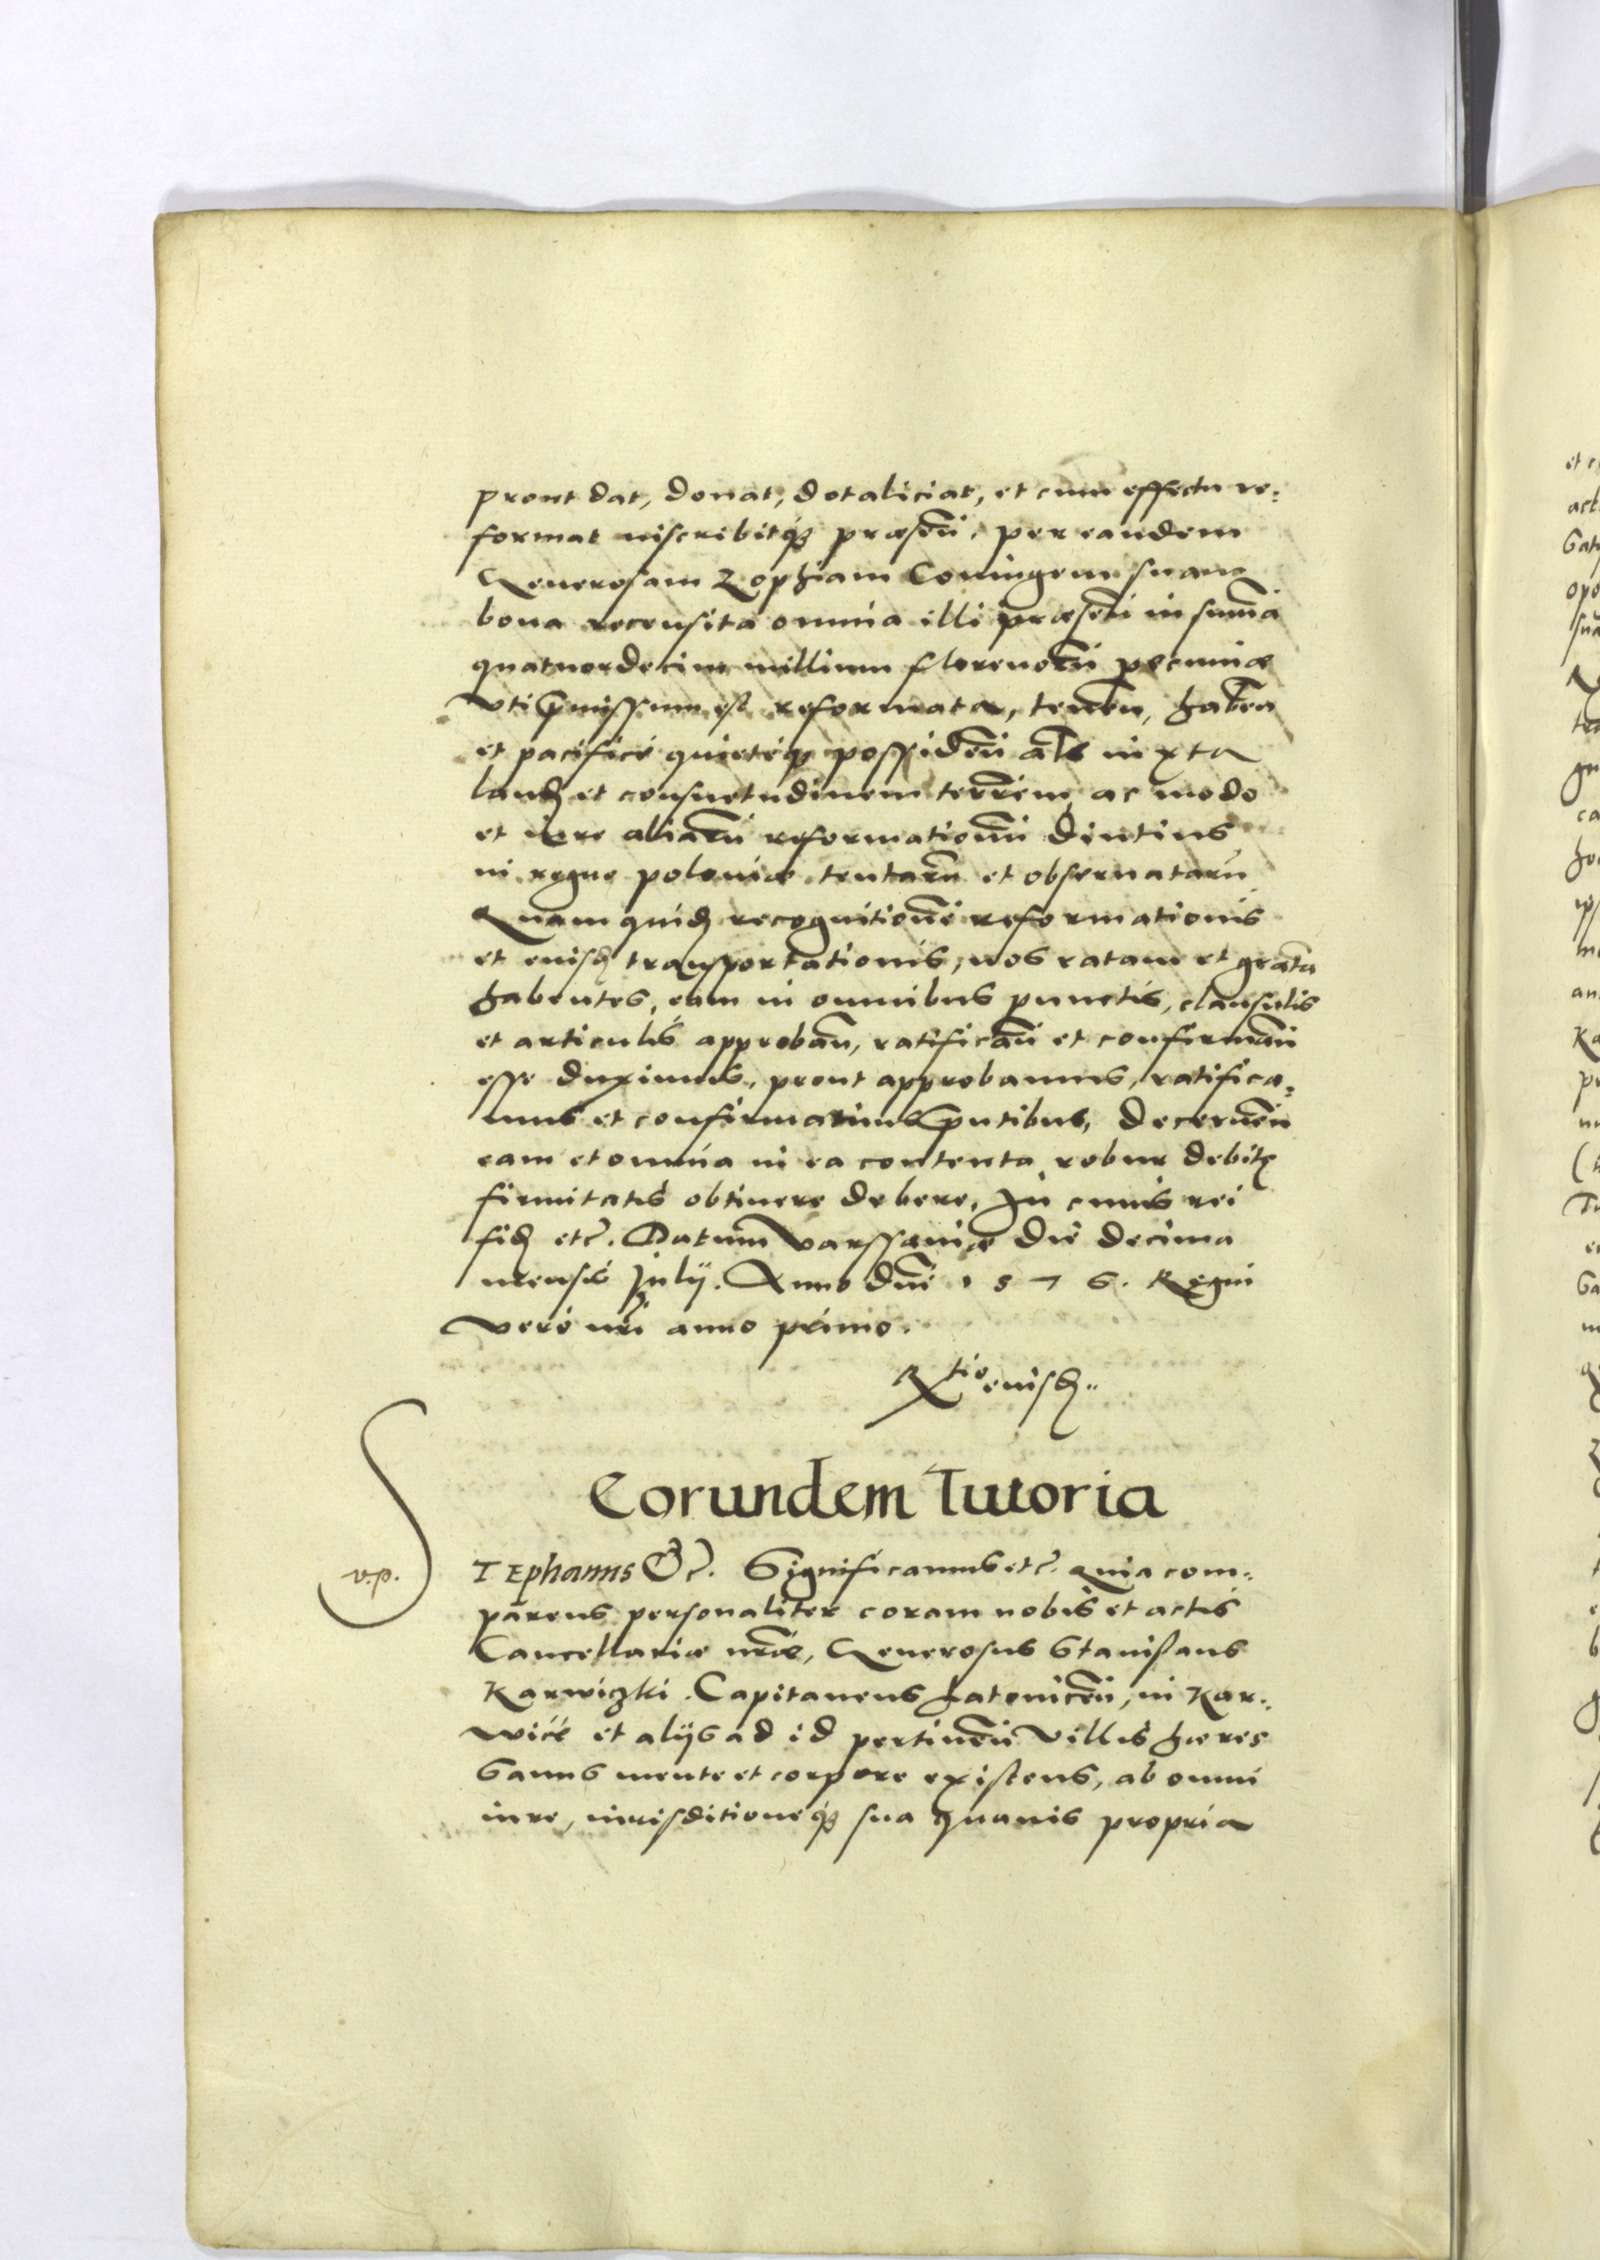 prout dat, donat, dotaliciat, et cum effectu re:
format inscribitq́ꝫ præsen̄. per eandem
Generosam Zophiam Coniugem suam
bona recensita omnia illi præsen̄ in sum̄a
quatuordecim millium florenorū pecuniæ
uti p̄missum est reformata, tenen̄, haben̄
et pacificè quietéqꝫ possiden̄ al̄s iuxta
laud et consuetudinem terrēm ac modo
et iure aliarū reformationū diutius
in regno poloniæ tentarū et obseruatarū
Quam quid recognitionē reformationis
et euisd transportationis, nos ratam et gratā
habentes, eam in omnibus punctis, clausulis
et articulis approban̄, ratifican̄ et confirman̄
esse duximus, prout approbamus, ratifica:
mus et confirmamus p̄ntibus, decernen̄
eam et omnia in ea contenta robur debitę
firmitatis obtinere debere. In cuius rei
fid etc̄. Datum Varssauiæ die decima
mensis Julij. Anno dn̄i 1576. Regni
vero nr̄i anno primo.
Rtio euisd..
Eorundem Tutoria
v.p.
STEphanus Etc̄. Significamus etc̄. Quia com:
parens personaliter coram nobis et actis
Cancellariæ nr̄æ, Generosus Stanislaus
Karwiczki. Capitaneus Latouicen̄, in Kar:
wice et alijs ad id pertinen̄ villis hæres
Sanus mente et corpore existens, ab omni
iure, iurisditioneq́ꝫ sua quauis propria